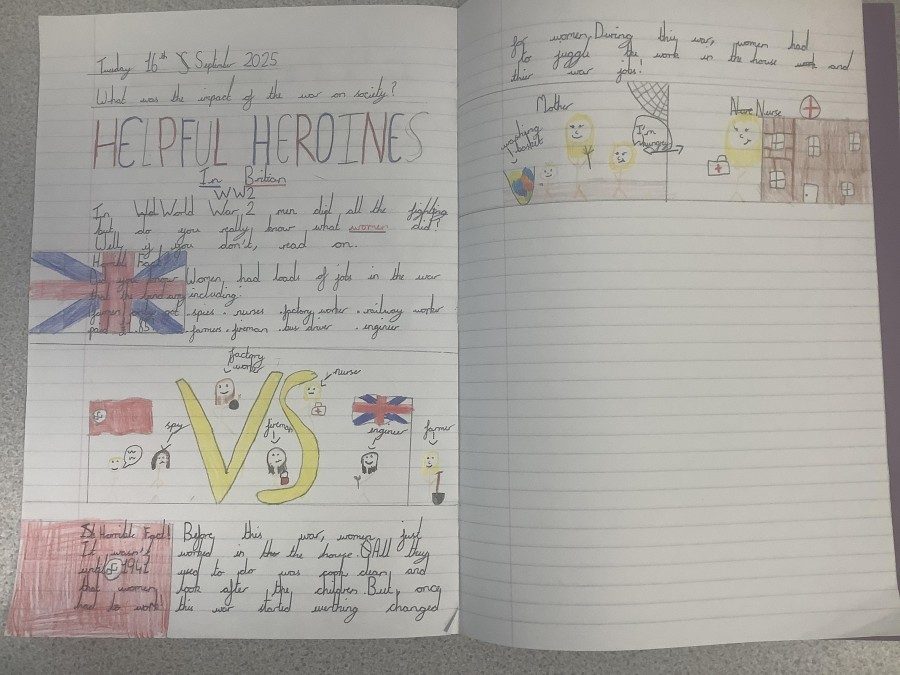 Tuesday 16th September 2025
What was the impact of the war on society?
HELPFUL HEROINES
In Britian
WW2
In World War 2 men did all the fighting
but do you really know what women did?
Well, if you don't, read on.
Horrible Fact!
Did you know
that the land army
farmers only got
paid
Women had loads of jobs in the war
including:
.spies .nurses .factory worker .railway worker
.farmers .fireman .bus driver .enginier
factory
worker
nurse
VS
spy
fireman
enginier
farmer
Horrible Fact!
It wasn't
until 1941
that women
had to work
Before this war, women just
worked in the house. All they
used to do was cook, clean and
look after the children. But, once
this war started everthing changed
for women. During this war, women had
to juggle the work in the house and
their war jobs!
Mother
washing
basket
I'm
hungry
Nurse